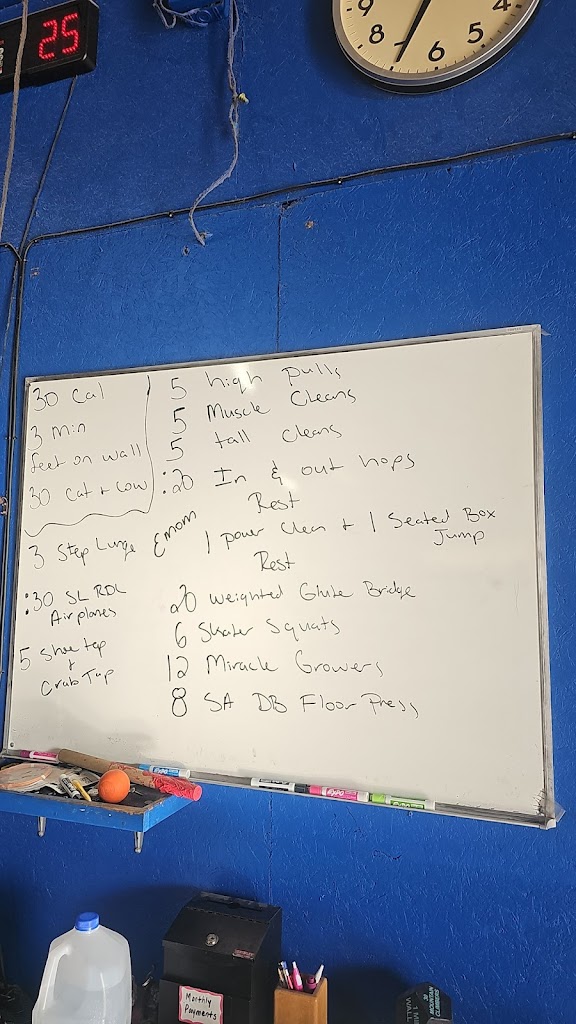 25
9
8
7
6
5
4
30 Cal
3 Min
feet on wall
30 Cat + Cow
3 Step Lunge
:30 SL RDL
Airplanes
5 Shoe tap
+
Crab Tap
5 high pulls
5 Muscle Cleans
5 tall cleans
:20 In & out hops
Rest
Emom 1 power clean + 1 Seated Box
Jump
Rest
20 Weighted Glute Bridge
6 Skater Squats
12 Miracle Growers
8 SA DB Floor Press
EXPO
EXPO
Monthly
Payments
30
MOUNTAIN
CLIMBERS